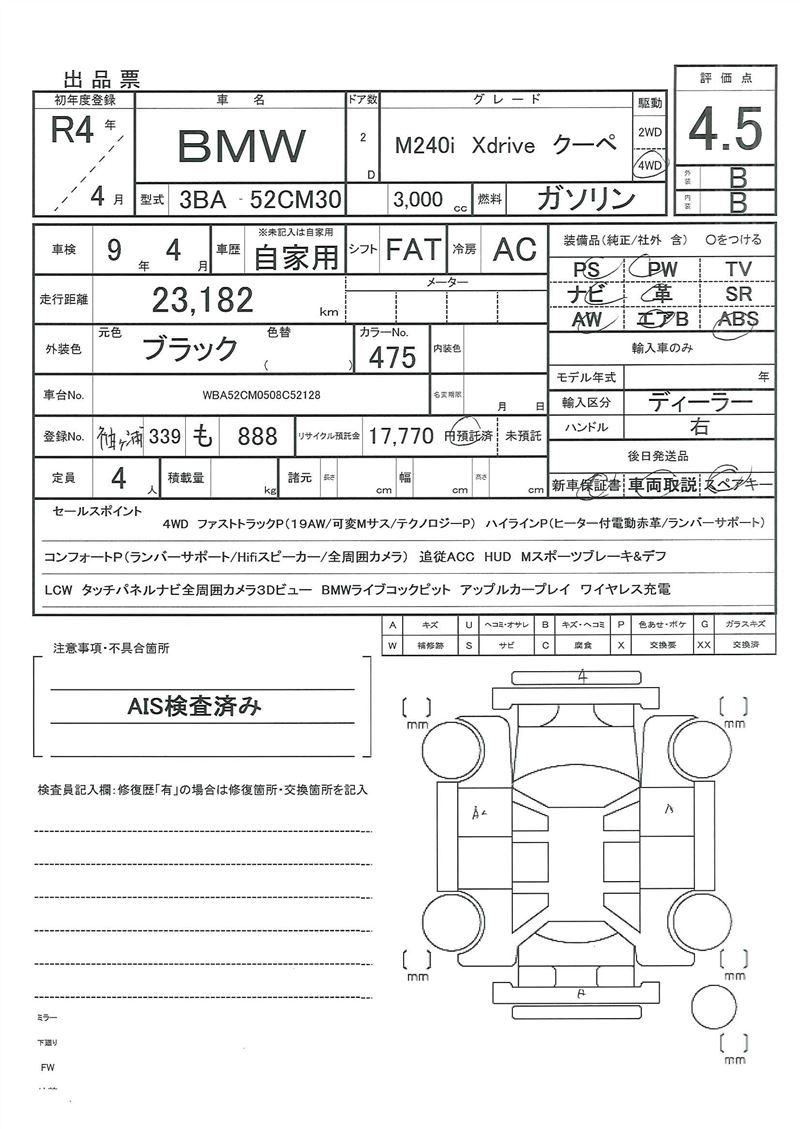 出品票
初年度登録 車名 ドア数 グレード 駆動 評価点
R4年 4月 BMW 2 D M240i Xdrive クーペ 2WD 4WD 4.5
型式 3BA - 52CM30 3,000 cc 燃料 ガソリン 外装 B
内装 B
車検 9年 4月 車歴 ※未記入は自家用 自家用 シフト FAT 冷房 AC 装備品(純正/社外 含) 〇をつける
PS PW TV
走行距離 23,182 km メーター ナビ 革 SR
AW エアB ABS
外装色 元色 ブラック 色替 ( ) カラーNo. 475 内装色 輸入車のみ
モデル年式 年
車台No. WBA52CM0508C52128 名変期限 月 日 輸入区分 ディーラー
ハンドル 右
登録No. 袖ヶ浦 339 も 888 リサイクル預託金 17,770 円預託済 未預託 後日発送品
定員 4人 積載量 kg 諸元 長さ cm 幅 cm 高さ cm 新車保証書 車両取説 スペアキー
セールスポイント
4WD ファストトラックP(19AW/可変Mサス/テクノロジーP) ハイラインP(ヒーター付電動赤革/ランバーサポート)
コンフォートP(ランバーサポート/Hifiスピーカー/全周囲カメラ) 追従ACC HUD Mスポーツブレーキ&デフ
LCW タッチパネルナビ全周囲カメラ3Dビュー BMWライブコックピット アップルカープレイ ワイヤレス充電
A キズ U ヘコミ・オサレ B キズ・ヘコミ P 色あせ・ボケ G ガラスキズ
W 補修跡 S サビ C 腐食 X 交換要 XX 交換済
注意事項・不具合箇所
AIS検査済み
4
[ ] mm [ ] mm
検査員記入欄:修復歴「有」の場合は修復箇所・交換箇所を記入
A2 A
[ ] mm [ ] mm
A
ミラー
下廻り
[ ] mm
FW